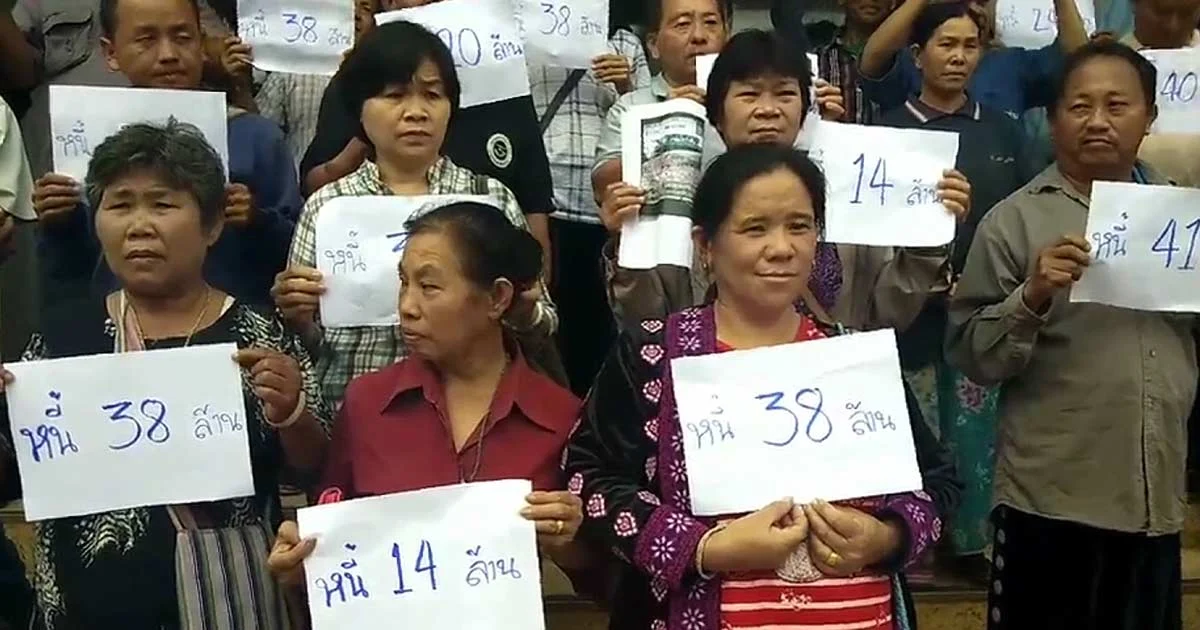 หนี้ 38 ล้าน
20 ล้าน
38 ล้าน
หนี้ 24
40
หนี้
14 ล้าน
หนี้
หนี้ 41
หนี้ 38 ล้าน
หนี้ 38 ล้าน
หนี้ 14 ล้าน